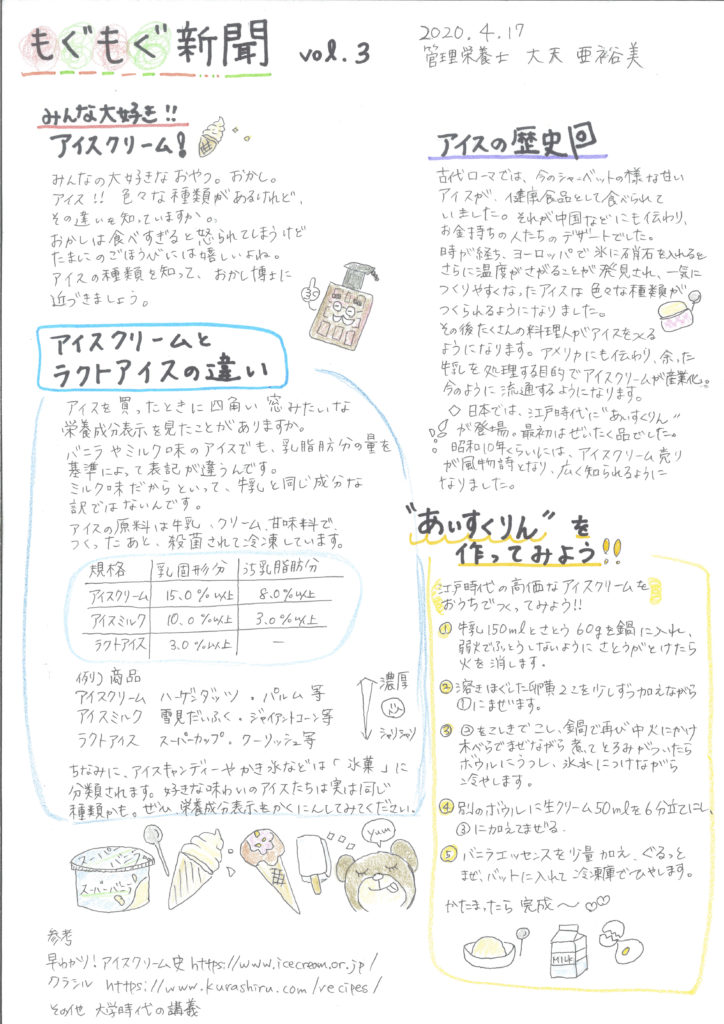 もぐもぐ新聞 vol.3
2020.4.17
管理栄養士 大天 亜裕美
みんな大好き!!
アイスクリーム!
みんなの大好きなおやつ。おかし。
アイス!! 色々な種類があるけれど、
その違いを知っていますか。
おかしは食べすぎると怒られてしまうけど
たまにのごほうびには嬉しいよね。
アイスの種類を知って、おかし博士に
近づきましょう。
アイスクリームと
ラクトアイスの違い
アイスを買ったときに四角い窓みたいな
栄養成分表示を見たことがありますか。
バニラやミルク味のアイスでも、乳脂肪分の量を
基準によって表記が違うんです。
ミルク味だからといって、牛乳と同じ成分な
訳ではないんです。
アイスの原料は牛乳、クリーム、甘味料で
つくったあと、殺菌されて冷凍しています。
規格 乳固形分 うち乳脂肪分
アイスクリーム 15.0%以上 8.0%以上
アイスミルク 10.0%以上 3.0%以上
ラクトアイス 3.0%以上 —
例) 商品
アイスクリーム ハーゲンダッツ・パルム等
アイスミルク 雪見だいふく・ジャイアントコーン等
ラクトアイス スーパーカップ・クーリッシュ等
濃厚
シャリシャリ
ちなみに、アイスキャンディーやかき氷などは「氷菓」に
分類されます。好きな味わいのアイスたちは実は同じ
種類かも。ぜひ、栄養成分表示もかくにんしてみてください。
スーパーバニラ
スーパーバニラ
Yum
参考
早わかり!アイスクリーム史 https://www.icecream.or.jp/
クラシル https://www.kurashiru.com/recipes/
その他 大学時代の講義
アイスの歴史
古代ローマでは、今のシャーベットの様な甘い
アイスが、健康食品として食べられて
いました。それが中国などにも伝わり、
お金持ちの人たちのデザートでした。
時が経ち、ヨーロッパで氷に硝石を入れると
さらに温度がさがることが発見され、一気に
つくりやすくなったアイスは色々な種類が
つくられるようになりました。
その後たくさんの料理人がアイスを
ようになります。アメリカにも伝わり、余った
牛乳を処理する目的でアイスクリームが産業化。
今のように流通するようになります。
◇日本では、江戸時代に"あいすくりん"
が登場。最初はぜいたく品でした。
昭和10年くらいには、アイスクリーム売り
が風物詩となり、広く知られるように
なりました。
"あいすくりん"を
作ってみよう!!
江戸時代の高価なアイスクリームを
おうちでつくってみよう!!
① 牛乳150mlとさとう60gを鍋に入れ、
弱火でふっとうしないようにさとうがとけたら
火を消します。
② 溶きほぐした卵黄2コを少しずつ加えながら
①にまぜます。
③ ②をこしきでこし、鍋で再び中火にかけ
木べらでまぜながら煮てとろみがついたら
ボウルにうつし、氷水につけながら
冷やします。
④ 別のボウルに生クリーム50mlを6分立てにし、
③に加えてまぜる。
⑤ バニラエッセンスを少量加え、ぐるっと
まぜ、バットに入れて冷凍庫でひやします。
かたまったら完成〜
MILK